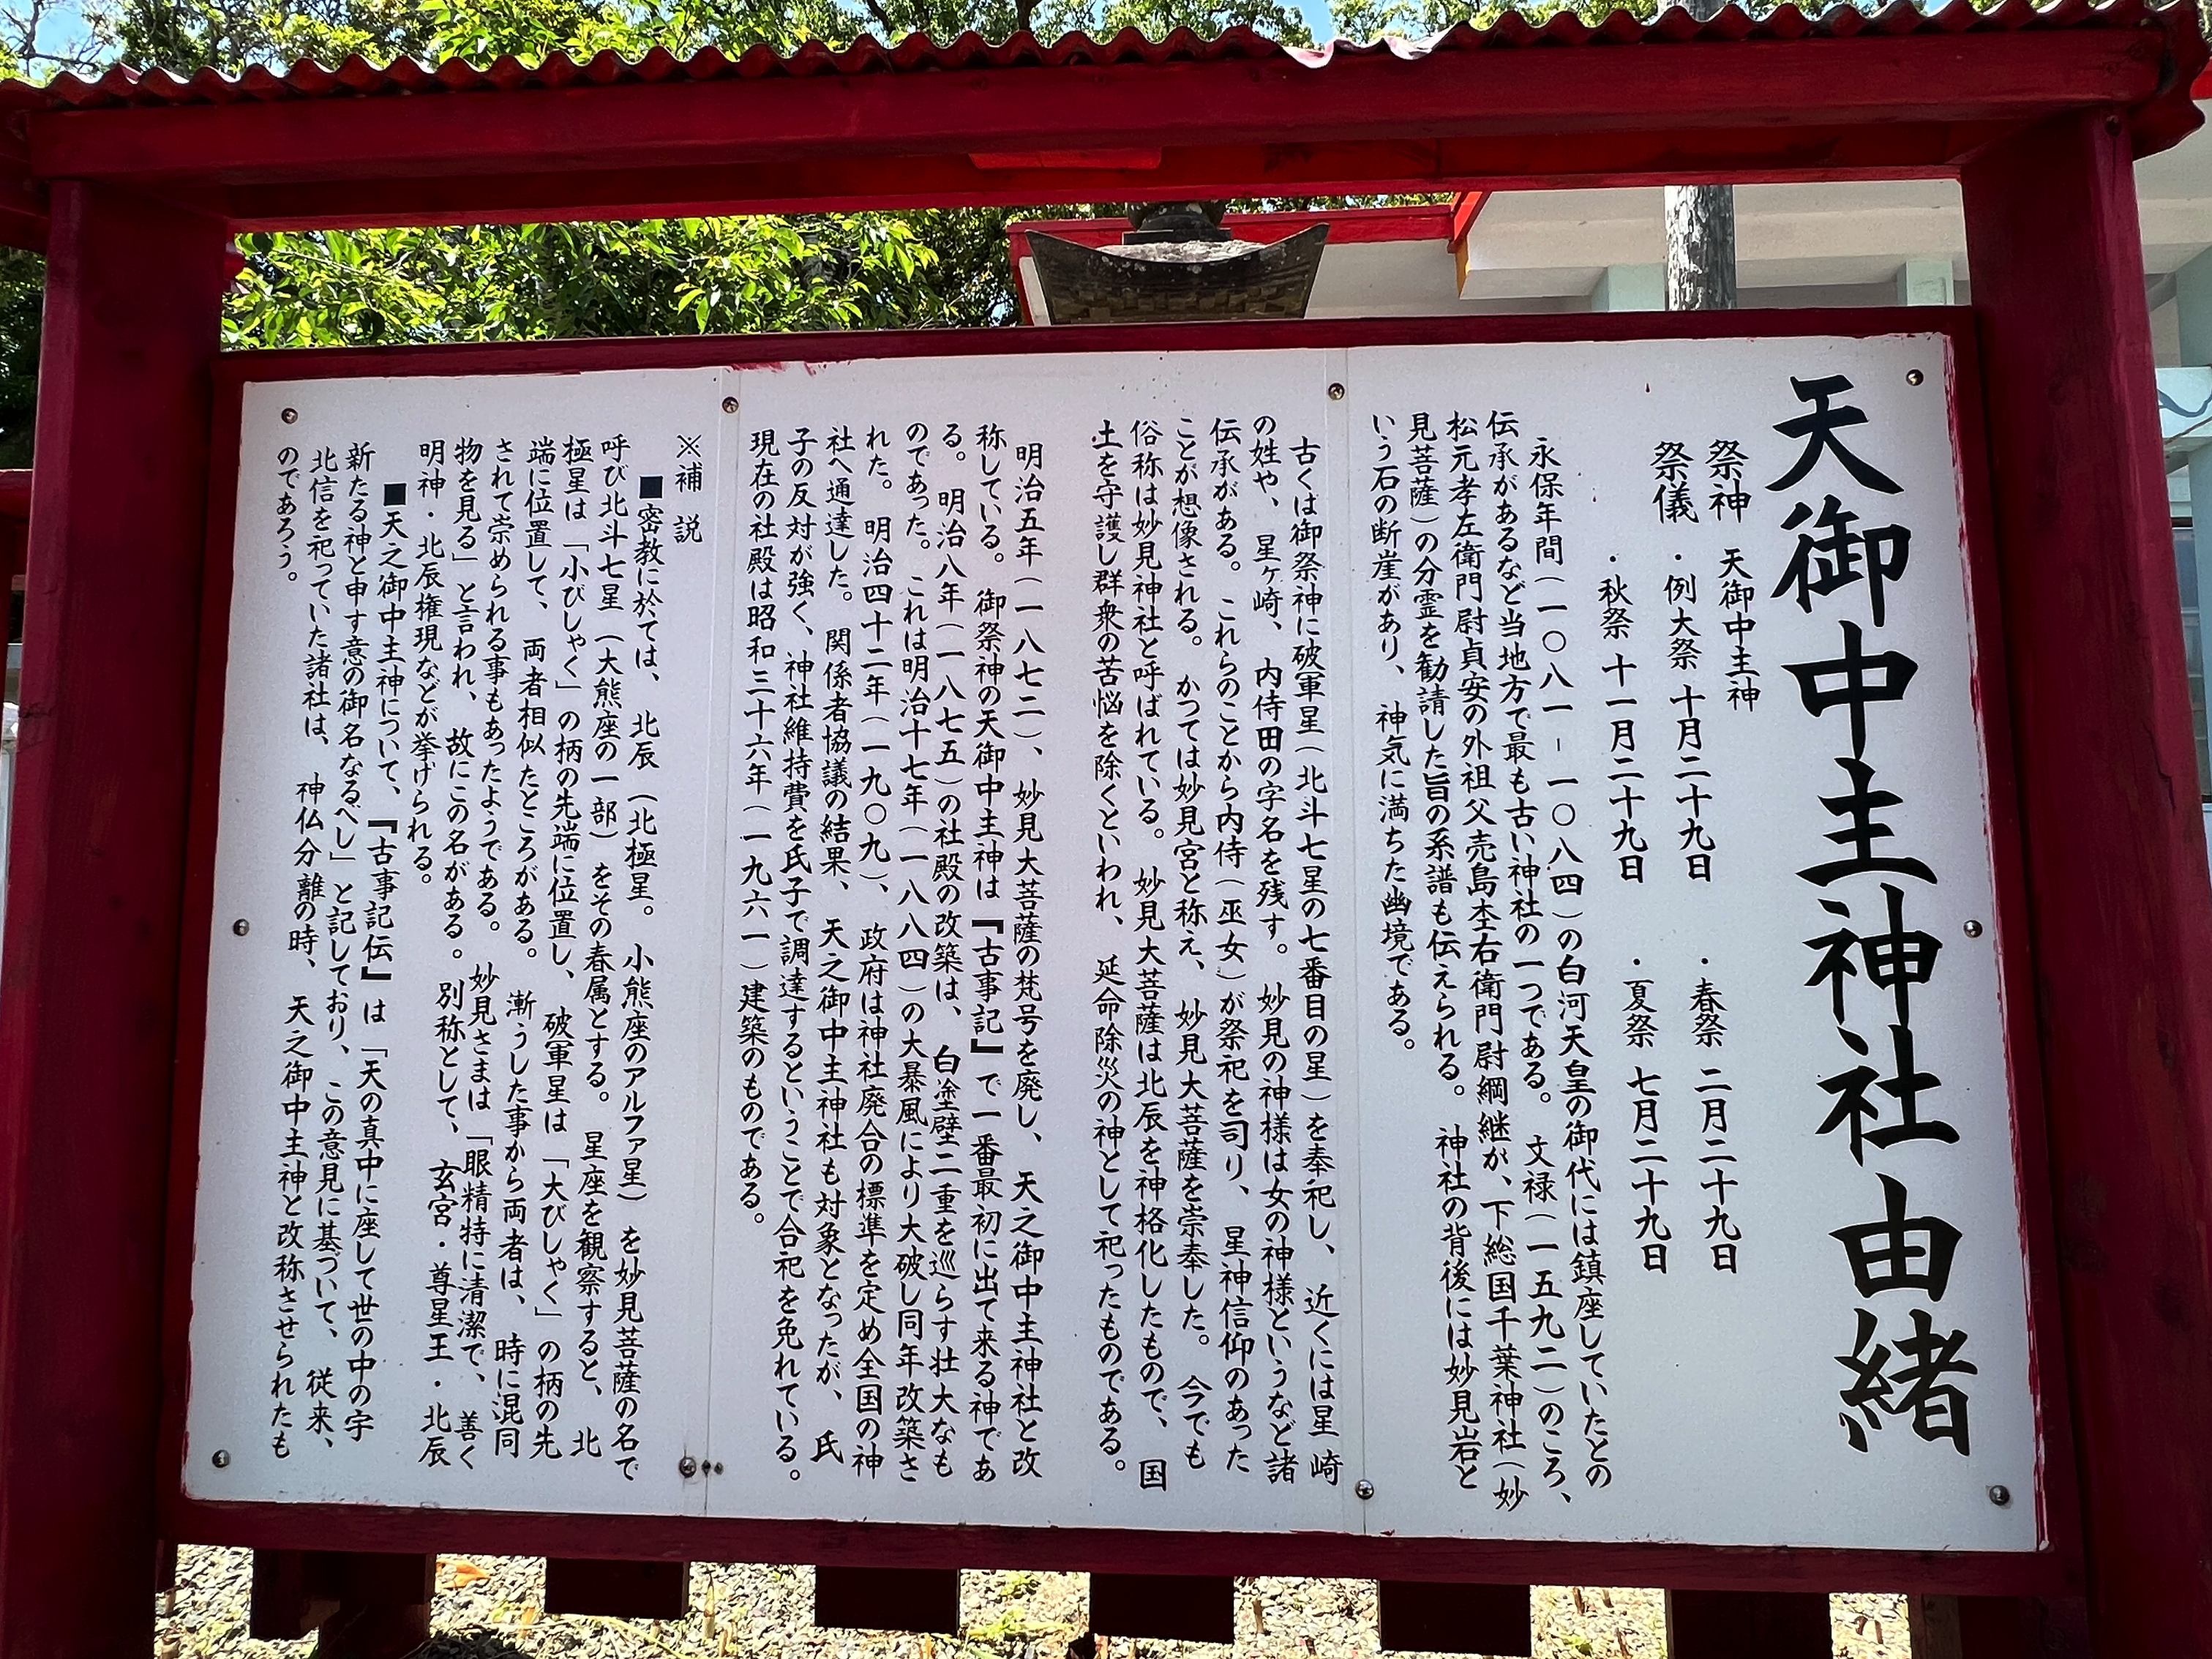 天御中主神社由緒
祭神 天御中主神
祭儀 ・例大祭 十月二十九日 ・春祭 二月二十九日
・秋祭 十一月二十九日 ・夏祭 七月二十九日
永保年間(一〇八一-一〇八四)の白河天皇の御代には鎮座していたとの
伝承があるなど当地方で最も古い神社の一つである。文禄(一五九二)のころ、
松元孝左衛門尉貞安の外祖父売島杢右衛門尉綱継が、下総国千葉神社(妙
見菩薩)の分霊を勧請した旨の系譜も伝えられる。神社の背後には妙見岩と
いう石の断崖があり、神気に満ちた幽境である。
古くは御祭神に破軍星(北斗七星の七番目の星)を奉祀し、近くには星崎
の姓や、星ヶ崎、内侍田の字名を残す。妙見の神様は女の神様というなど諸
伝承がある。これらのことから内侍(巫女)が祭祀を司り、星神信仰のあった
ことが想像される。かつては妙見宮と称え、妙見大菩薩を崇奉した。今でも
俗称は妙見神社と呼ばれている。妙見大菩薩は北辰を神格化したもので、国
土を守護し群衆の苦悩を除くといわれ、延命除災の神として祀ったものである。
明治五年(一八七二)、妙見大菩薩の梵号を廃し、天之御中主神社と改
称している。御祭神の天御中主神は『古事記』で一番最初に出て来る神であ
る。明治八年(一八七五)の社殿の改築は、白塗壁二重を巡らす壮大なも
のであった。これは明治十七年(一八八四)の大暴風により大破し同年改築さ
れた。明治四十二年(一九〇九)、政府は神社廃合の標準を定め全国の神
社へ通達した。関係者協議の結果、天之御中主神社も対象となったが、氏
子の反対が強く、神社維持費を氏子で調達するということで合祀を免れている。
現在の社殿は昭和三十六年(一九六一)建築のものである。
※補説
■密教に於ては、北辰(北極星。小熊座のアルファ星)を妙見菩薩の名で
呼び北斗七星(大熊座の一部)をその春属とする。星座を観察すると、北
極星は「小びしゃく」の柄の先端に位置し、破軍星は「大びしゃく」の柄の先
端に位置して、両者相似たところがある。漸うした事から両者は、時に混同
されて崇められる事もあったようである。妙見さまは「眼精特に清潔で、善く
物を見る」と言われ、故にこの名がある。別称として、玄宮・尊星王・北辰
明神・北辰権現などが挙げられる。
■天之御中主神について、『古事記伝』は「天の真中に座して世の中の宇
新たる神と申す意の御名なるべし」と記しており、この意見に基づいて、従来、
北信を祀っていた諸社は、神仏分離の時、天之御中主神と改称させられたも
のであろう。